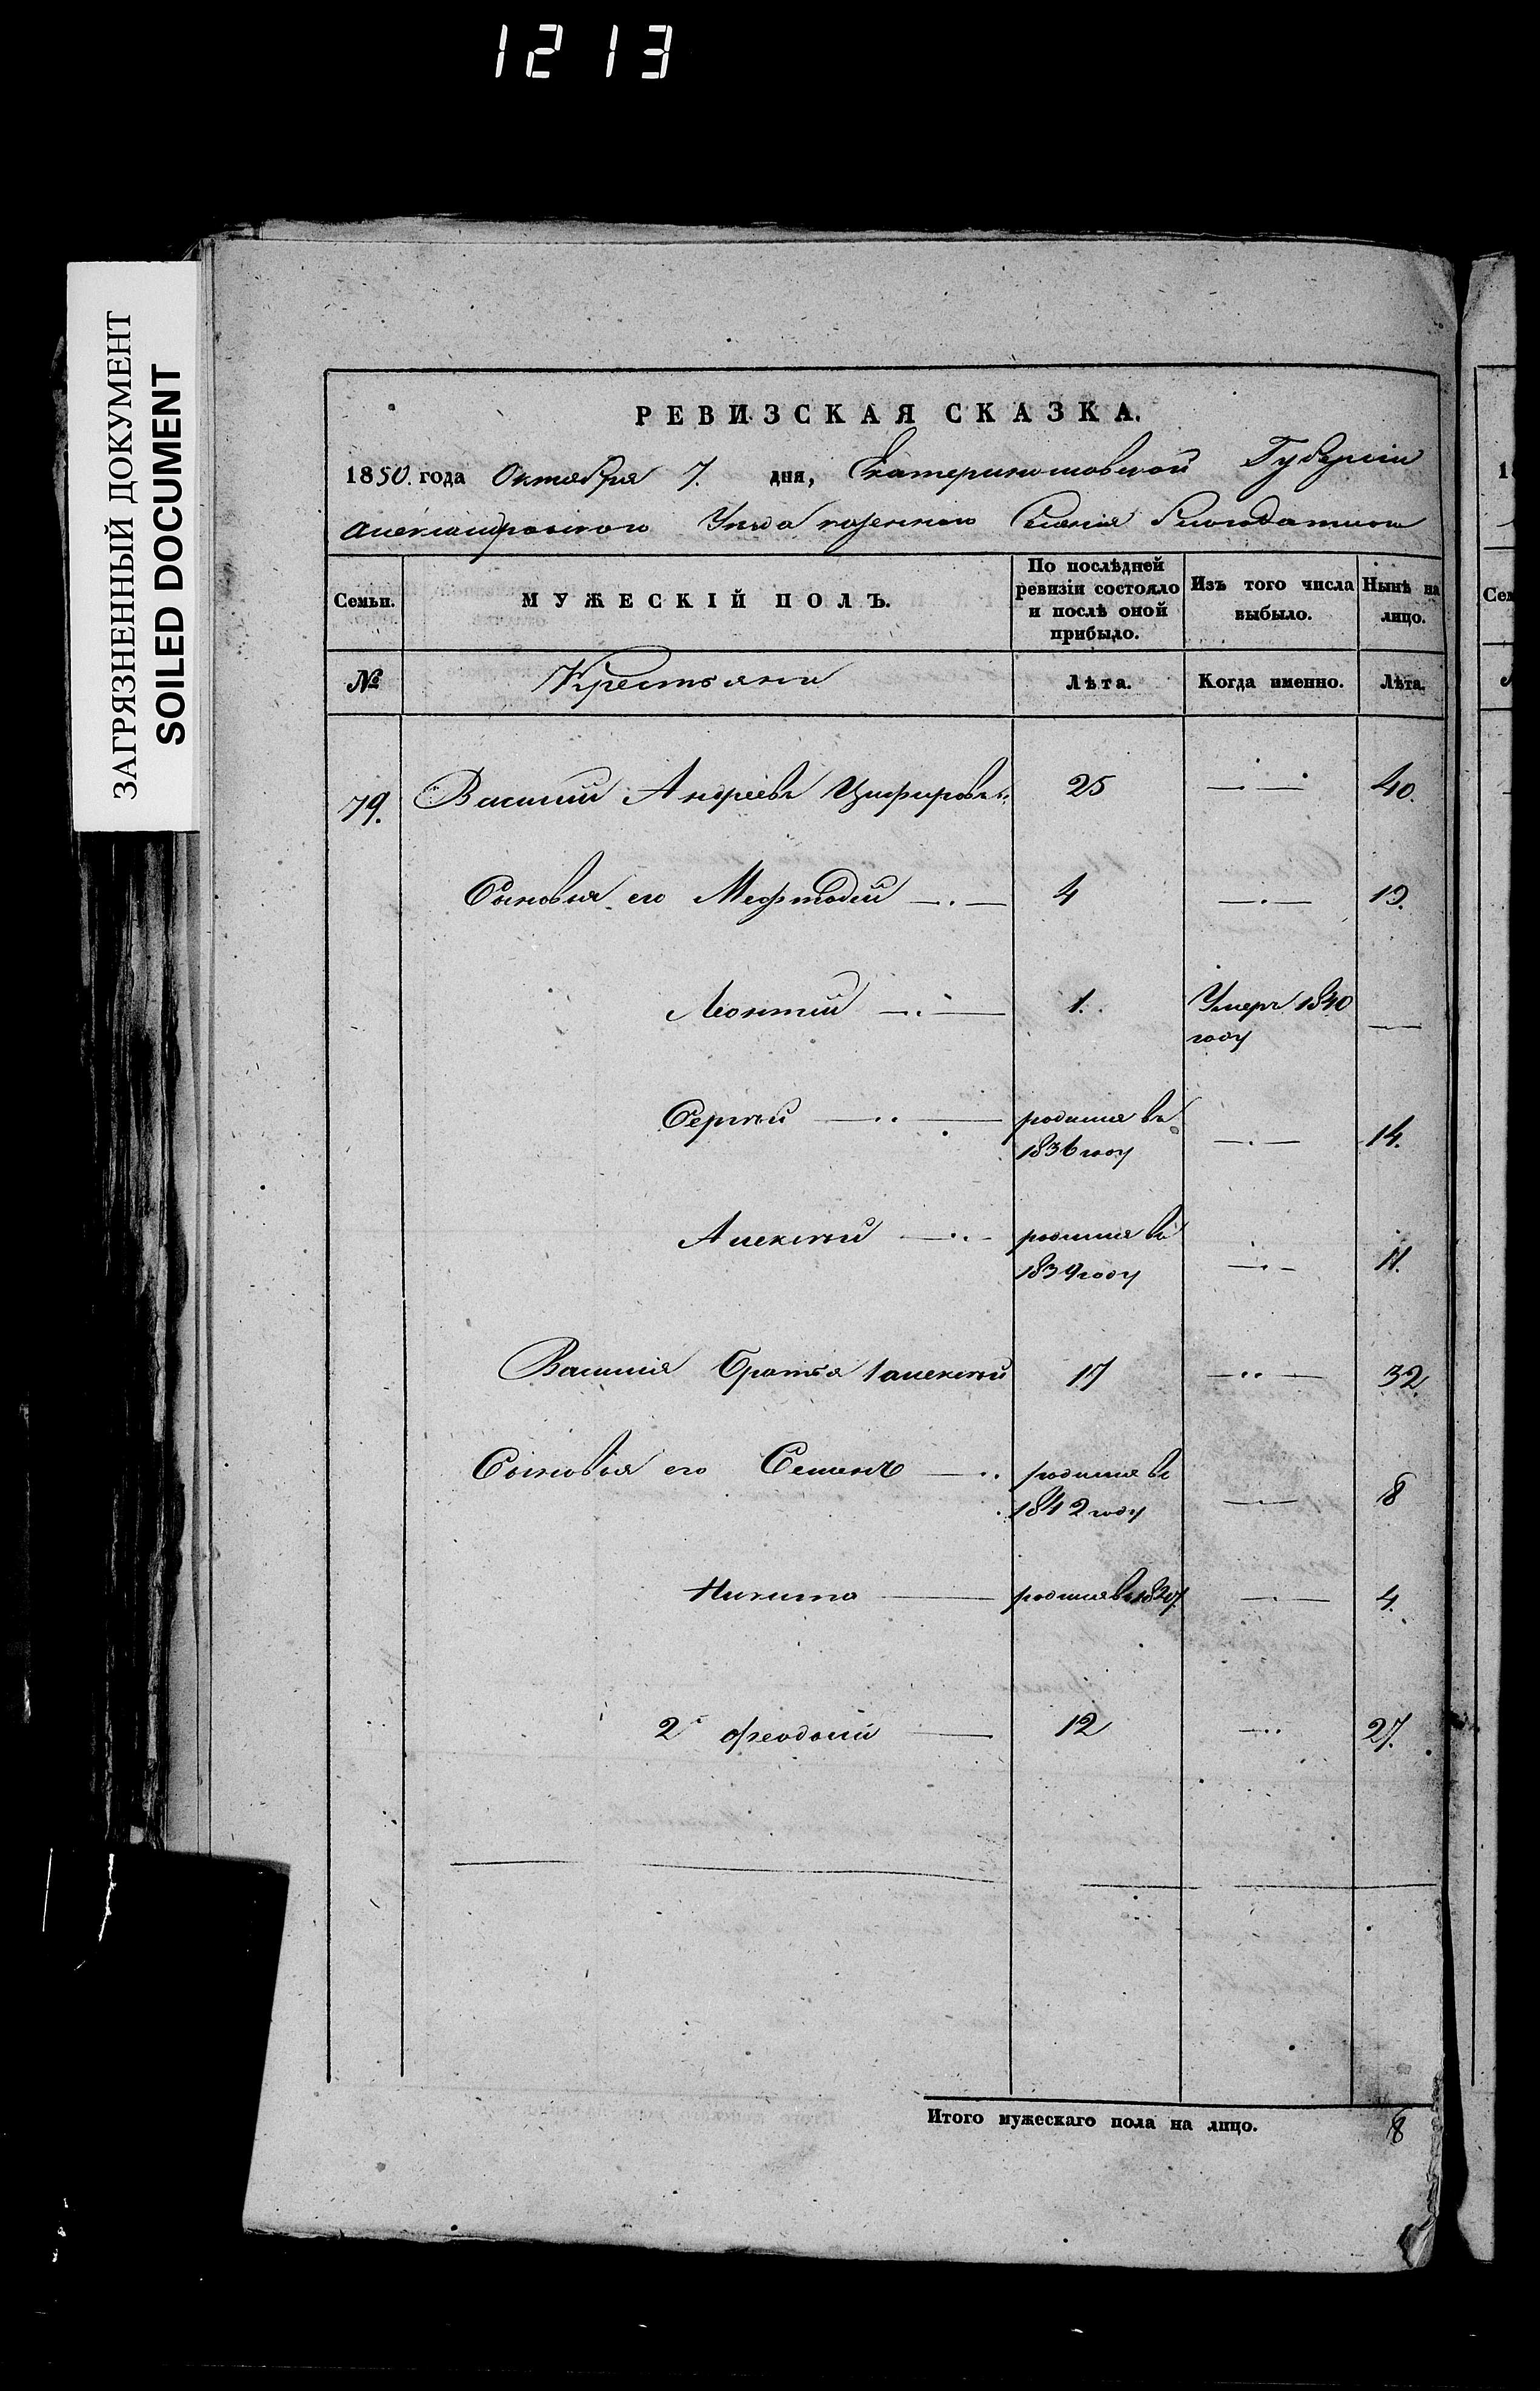 1213
ЗАГРЯЗНЕННЫЙ ДОКУМЕНТ
SOILED DOCUMENT
РЕВИЗСКАЯ СКАЗКА.
1850. года Октября 7. дня, Екатеринославской Губернии
Александровского Уезда казенного Селения Благодатного
Семьи.
МУЖЕСКІЙ ПОЛЪ.
По послѣдней ревизіи состояло и послѣ оной прибыло.
Изъ того числа выбыло.
Нынѣ на лицо.
№ Крестьяни Лѣта. Когда именно. Лѣта.
79. Василий Андреевъ 25 40.
Сыновья его Мефтодий 4 19.
Леонтий 1. Умеръ 1840
году
Сергѣй родился въ
1836 году 14.
Алексѣй родился въ
1839 году 11.
Василия Братья 1 алексѣй 17 32
Сыновья его Семенъ родился въ
1842 году 8
Никита родился въ 4.
2й феодосий 12 27.
Итого мужескаго пола на лицо. 8
18
Сем